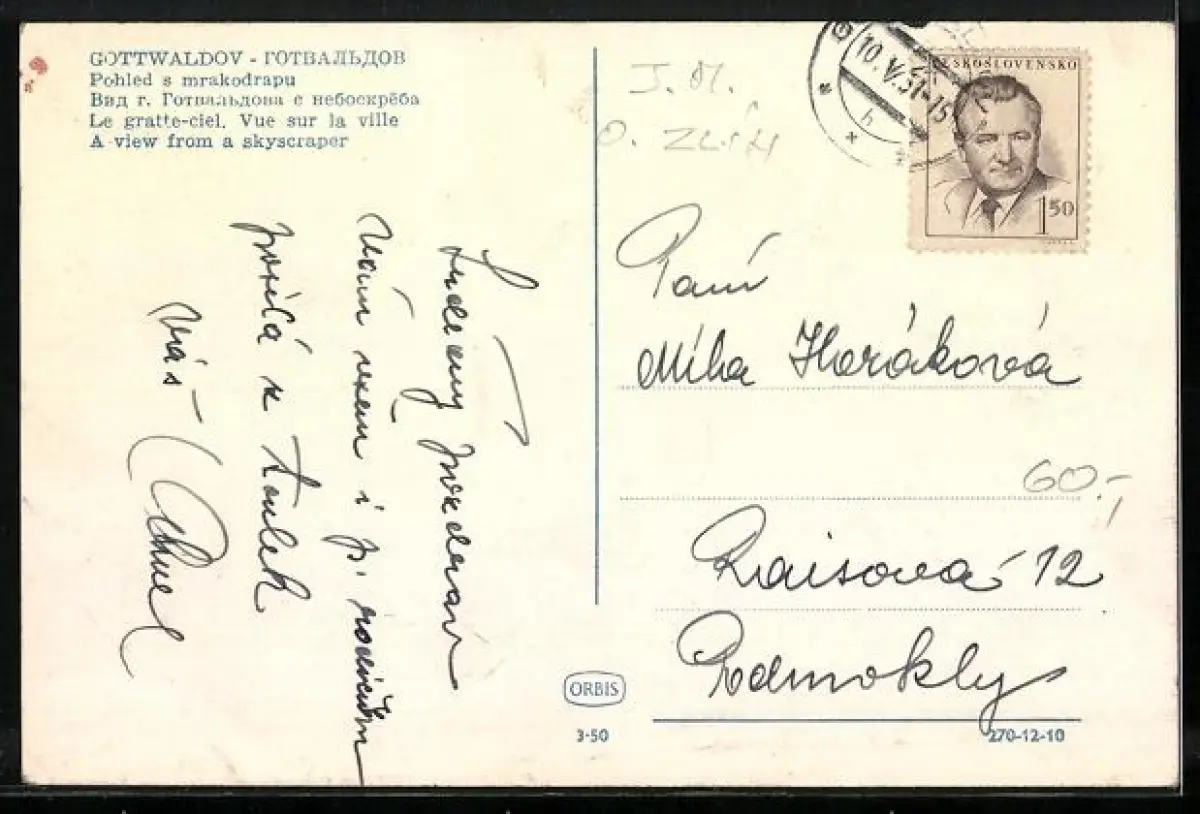 GOTTWALDOV - ГОТВАЛЬДОВ
Pohled s mrakodrapu
Вид г. Готвальдова с небоскрёба
Le gratte-ciel. Vue sur la ville
A view from a skyscraper
J. M.
O. ZLÍN
10. V. 51-15
h
ČESKOSLOVENSKO
1 50
Srdečný pozdrav
Vám všem i p. rodičům
posílá z
Vás
Paní
Míha Horáková
60.-
Raisova 12
Podmokly
ORBIS
3-50
270-12-10